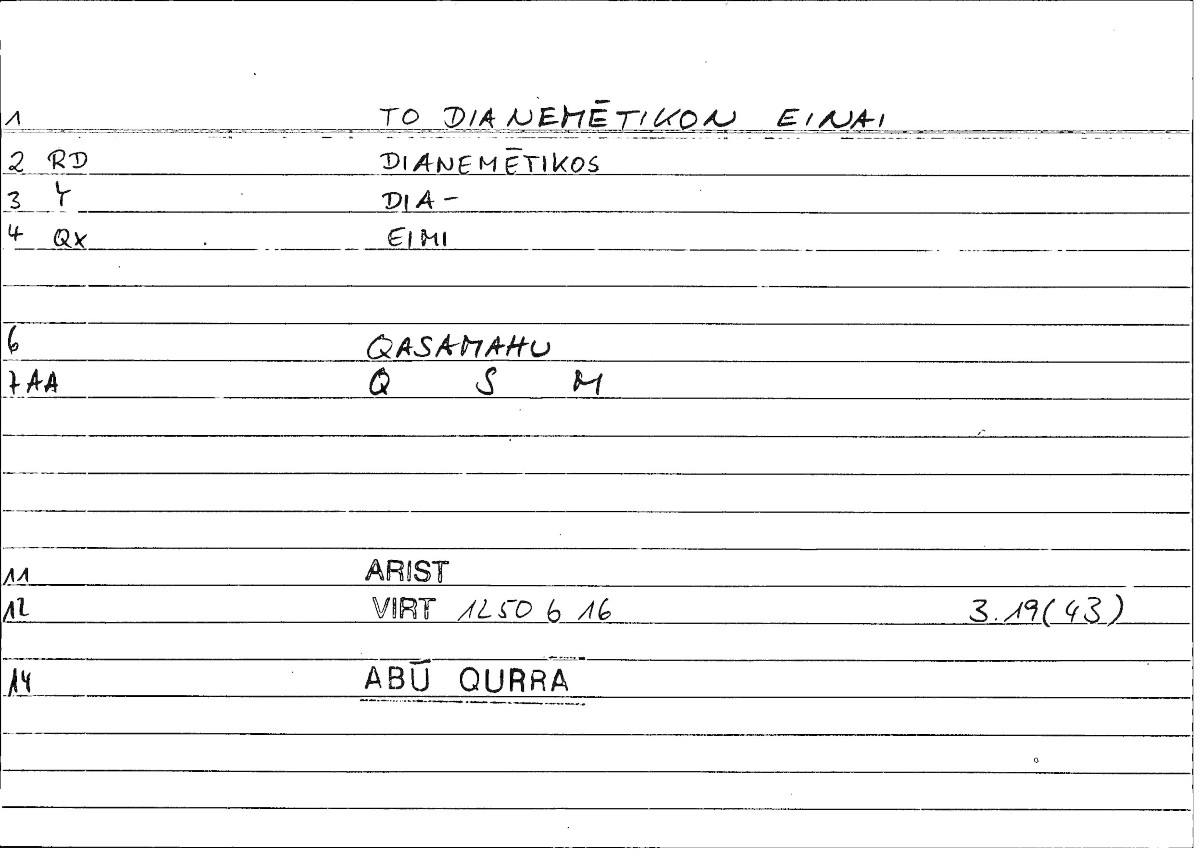 1 TO DIANEMĒTIKON EINAI
2 RD DIANEMĒTIKOS
3 Y DIA-
4 Qx EIMI
6 QASAMAHU
7 AA Q S M
11 ARIST
12 VIRT 1250 b 16 3.19(43)
14 ABŪ QURRA